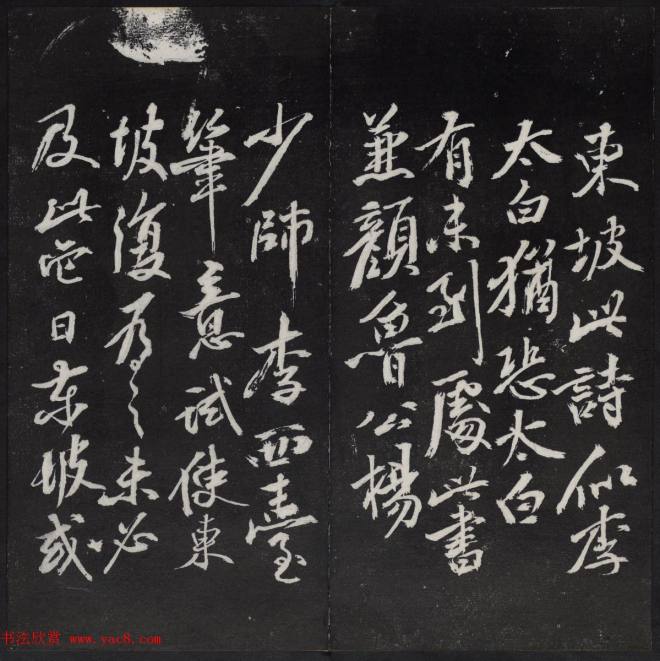 東坡此詩似李
太白猶恐太白
有未到處此書
兼顏魯公楊
少師李西臺
筆意試使東
坡復為之未必
及此它日東坡或
书法欣赏 www.yac8.com